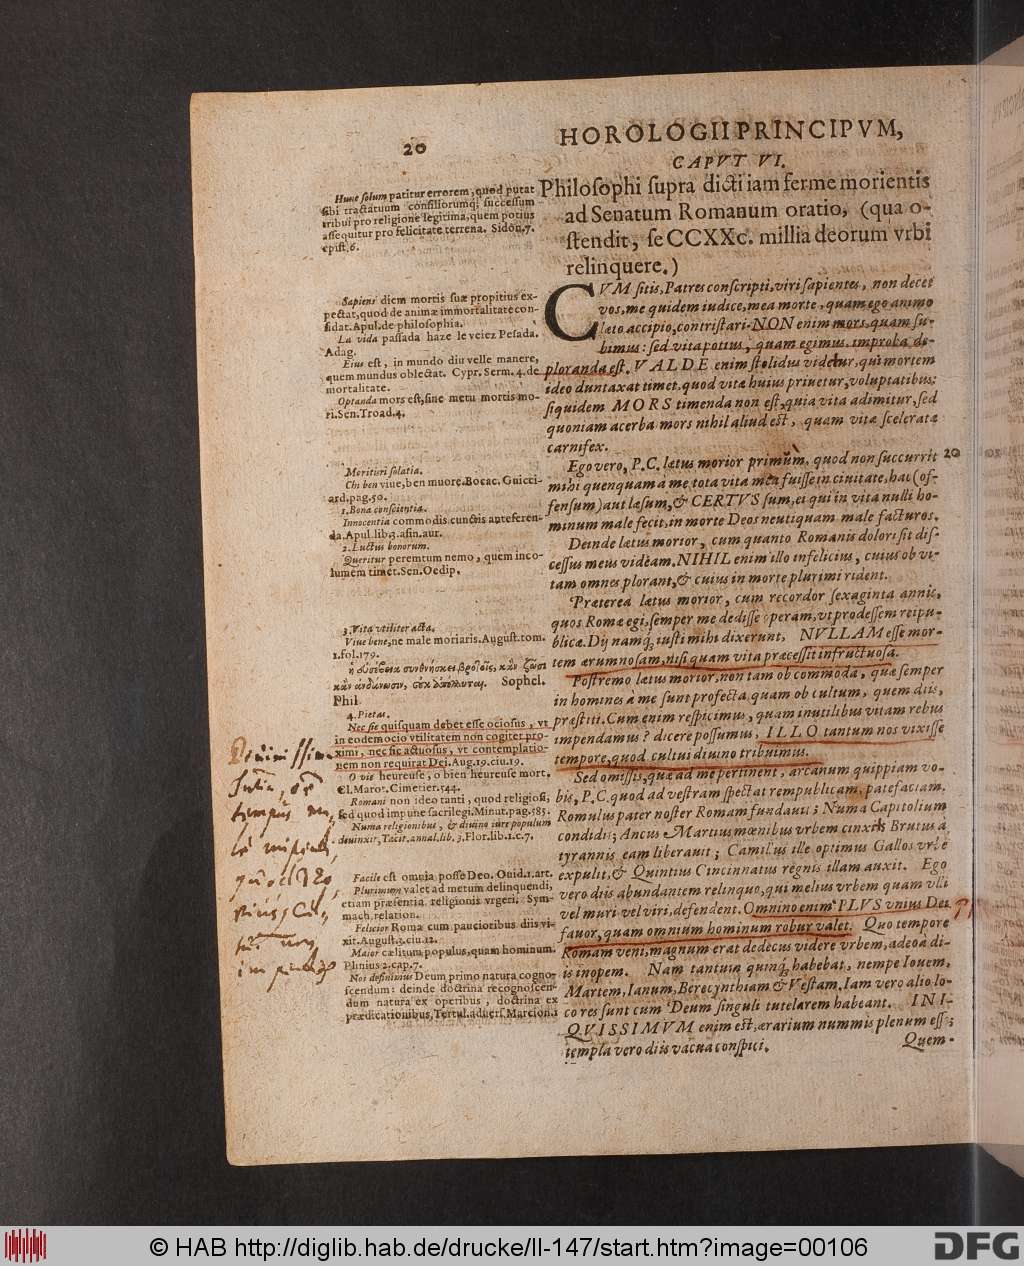 20
HOROLOGII PRINCIPVM,
CAPVT VI.
Philosophi supra dicti iam ferme morientis
ad Senatum Romanum oratio, (qua o-
stendit, se CCXXc. millia deorum vrbi
relinquere.)
CVM sitis, Patres conscripti, viri sapientes, non decet
vos, me quidem iudice, mea morte, quam ego animo
læto accipio, contristari. NON enim mors, quam su-
bimus: sed vita potius, quam egimus improba de-
ploranda est. VALDE enim stolidus videtur, qui mortem
ideo duntaxat timet, quod vitæ huius priuetur, voluptatibus:
siquidem MORS timenda non est, quia vita adimitur, sed
quoniam acerba mors nihil aliud est, quam vitæ sceleratæ
carnifex.
Ego vero, P.C. lætus morior primùm, quod non succurrit
mihi quenquam a me, tota vita mea fuisse in ciuitate, hac (of-
fensum) aut læsum, & CERTVS sum, ei qui in vita nulli ho-
minum male fecit, in morte Deos neutiquam male facturos.
Deinde lætus morior, cum quanto Romanis dolori sit dis-
cessus meus videam. NIHIL enim illo infelicius, cuius ob vi-
tam omnes plorant, & cuius in morte plurimi rident.
Præterea lætus morior, cum recordor sexaginta annis,
quos Romæ egi, semper me dedisse operam, vt prodessem reipu-
blicæ. Dij namq; iusti mihi dixerunt, NVLLAM esse mor-
tem ærumnosam, nisi quam vita præcessit infructuosa.
Postremo lætus morior, non tam ob commoda, quæ semper
in homines à me sunt profecta, quam ob cultum, quem diis,
præstiti. Cum enim respicimus, quam inutilibus vitam rebus
impendamus? dicere possumus, ILLO tantum nos vixisse
tempore, quod cultui diuino tribuimus.
Sed omissis, quæ ad me pertinent, arcanum quippiam vo-
bis, P.C. quod ad vestram spectat rempublicam, patefaciam.
Romulus pater noster Romam fundauit; Numa Capitolium
condidit; Ancus Martius mœnibus vrbem cinxit; Brutus à
tyrannis eam liberauit; Camillus ille optimus Gallos vrbe
expulit, & Quintius Cincinnatus regnis illam auxit. Ego
vero diis abundantem relinquo, qui melius vrbem quam vlli
vel muri vel viri, defendent. Omnino enim PLVS vnius Dei
fauor, quam omnium hominum robur valet. Quo tempore
Romam veni, magnum erat dedecus videre vrbem, adeo à di-
is inopem. Nam tantum quinq; habebat, nempe Iouem,
Martem, Ianum, Berecynthiam & Vestam, Iam vero alio lo-
co res sunt cum Deum singuli tutelarem habeant. INI-
QVISSIMVM enim est, ærarium nummis plenum esse;
templa vero diis vacua conspici.
Quem-
20
Hunc solum patitur errorem, quod putat
sibi tractatuum consiliorumq; successum
tribui pro religione legitima, quem potius
assequitur pro felicitate terrena. Sidon. 7.
epist. 6.
Sapiens diem mortis suæ propitius ex-
pectat, quod de animæ immortalitate con-
fidat. Apul. de philosophia.
La vida passada haze le veiez Pesada.
Adag.
Eius est, in mundo diu velle manere,
quem mundus oblectat. Cypr. Serm. 4. de
mortalitate.
Optanda mors est, sine metu mortis mo-
ri. Sen. Troad. 4.
Morituri solatia.
Chi ben viue, ben muore. Bocac. Guicci-
ard. pag. 50.
1. Bona conscientia.
Innocentia commodis cunctis anteferen-
da. Apul. lib. 3. asin. aur.
2. Luctus bonorum.
Queritur peremtum nemo, quem inco-
lumem timet. Sen. Oedip.
3. Vita vtiliter acta.
Viue bene, ne male moriaris. August. tom.
1. fol. 179.
ἡ εὐσέβεια συνθνήσκει βροτοῖς, κᾂν ζῶσι
κᾂν θάνωσιν, οὐκ ἀπόλλυται. Sophcl.
Phil.
4. Pietas.
Nec sic quisquam debet esse ociosus, vt
in eodem ocio vtilitatem non cogitet pro-
ximi, nec sic actuosus, vt contemplatio-
nem non requirat Dei. Aug. 19. ciu. 19.
O vie heureuse, o bien heureuse mort.
Cl. Marot. Cimetier. 544.
Romani non ideo tanti, quod religiosi,
sed quod impune sacrilegi. Minut. pag. 585.
Numa religionibus, & diuino iure populum
diuinxit, Tacit. annal. lib. 3. Flor. lib. 1. c. 7.
Facile est omnia posse Deo. Ouid. 1. art.
Plurimum valet ad metum delinquendi,
etiam præsentia religionis vrgeri. Sym-
mach. relation.
Felicior Roma cum paucioribus diis vi-
xit. August. 3. ciu. 12.
Maior cælitum populus, quam hominum.
Plinius 2. cap. 7.
Nos definimus Deum primo natura cogno-
scendum: deinde doctrina recognoscen-
dum natura ex operibus, doctrina ex
prædicationibus, Tertul. aduers. Marcion. 1
© HAB http://diglib.hab.de/drucke/ll-147/start.htm?image=00106
DFG